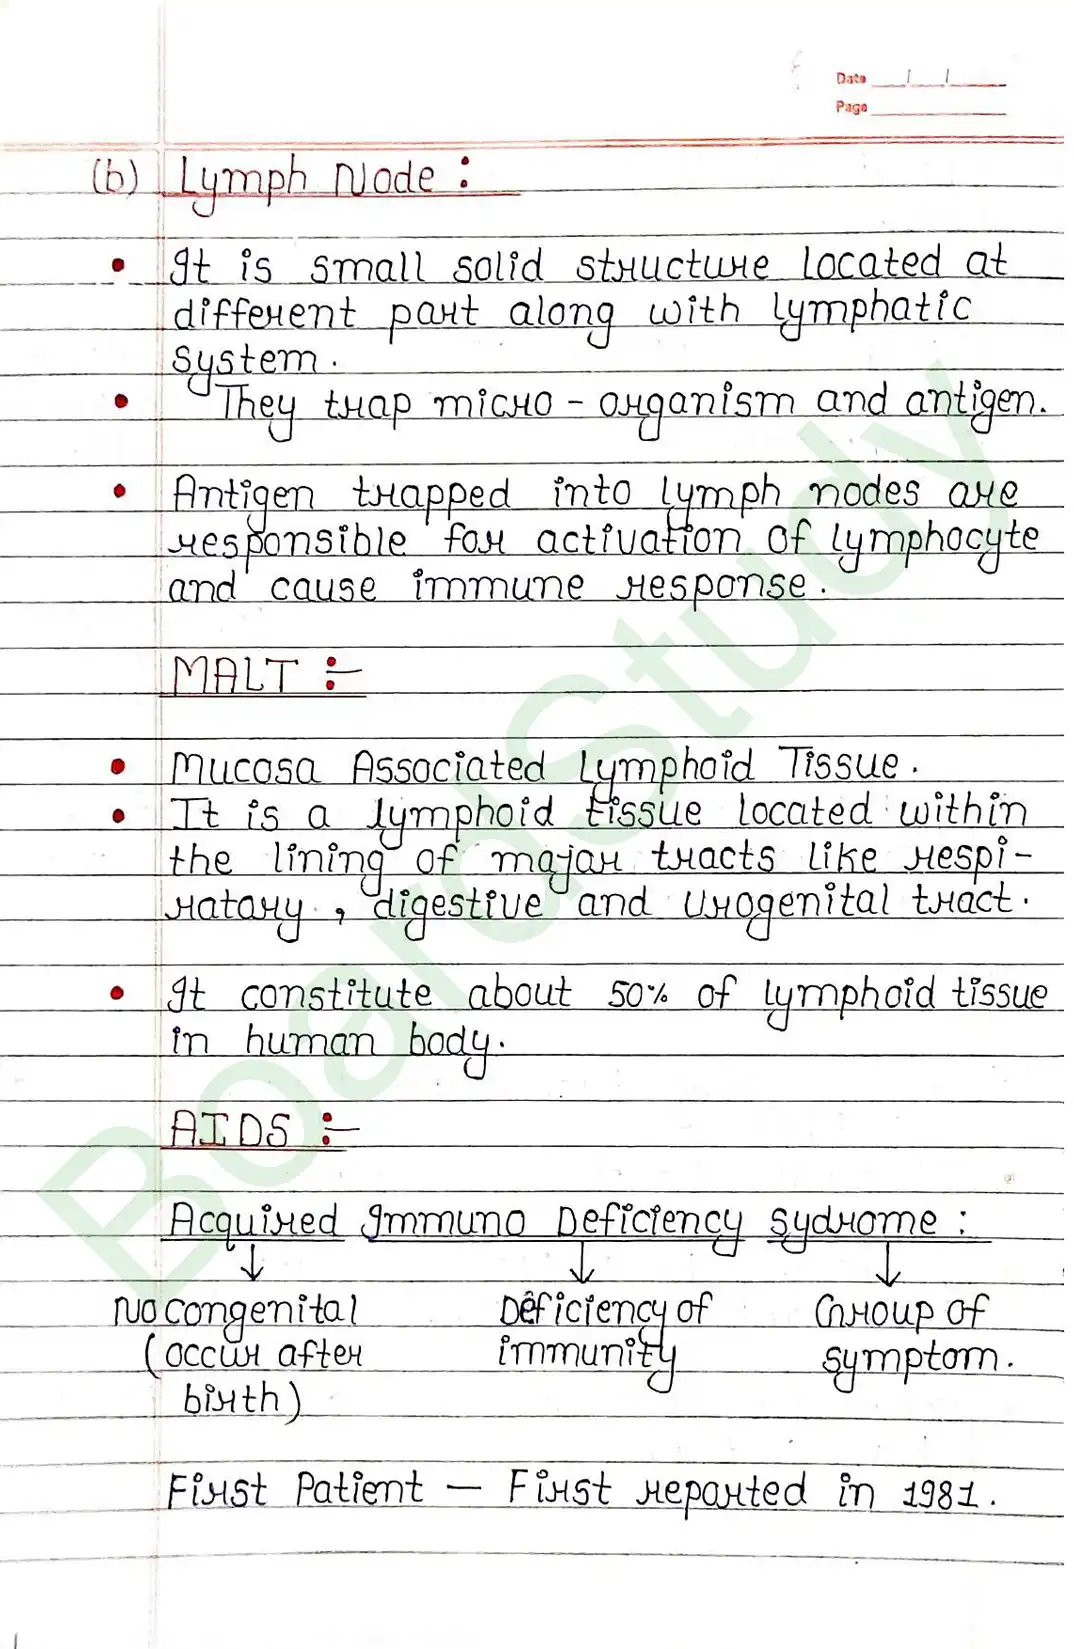 Date / /
Page
(b) Lymph Node :
It is small solid structure located at
different part along with lymphatic
system.
They trap micro - organism and antigen.
Antigen trapped into lymph nodes are
responsible for activation of lymphocyte
and cause immune response.
MALT :-
Mucosa Associated Lymphoid Tissue.
It is a lymphoid tissue located within
the lining of major tracts like respi-
ratory, digestive and urogenital tract.
It constitute about 50% of lymphoid tissue
in human body.
AIDS :-
Acquired Immuno Deficiency sydrome :
↓ ↓ ↓
No congenital Deficiency of Group of
(occur after immunity symptom.
birth)
First Patient — First reported in 1981.
BoardStudy